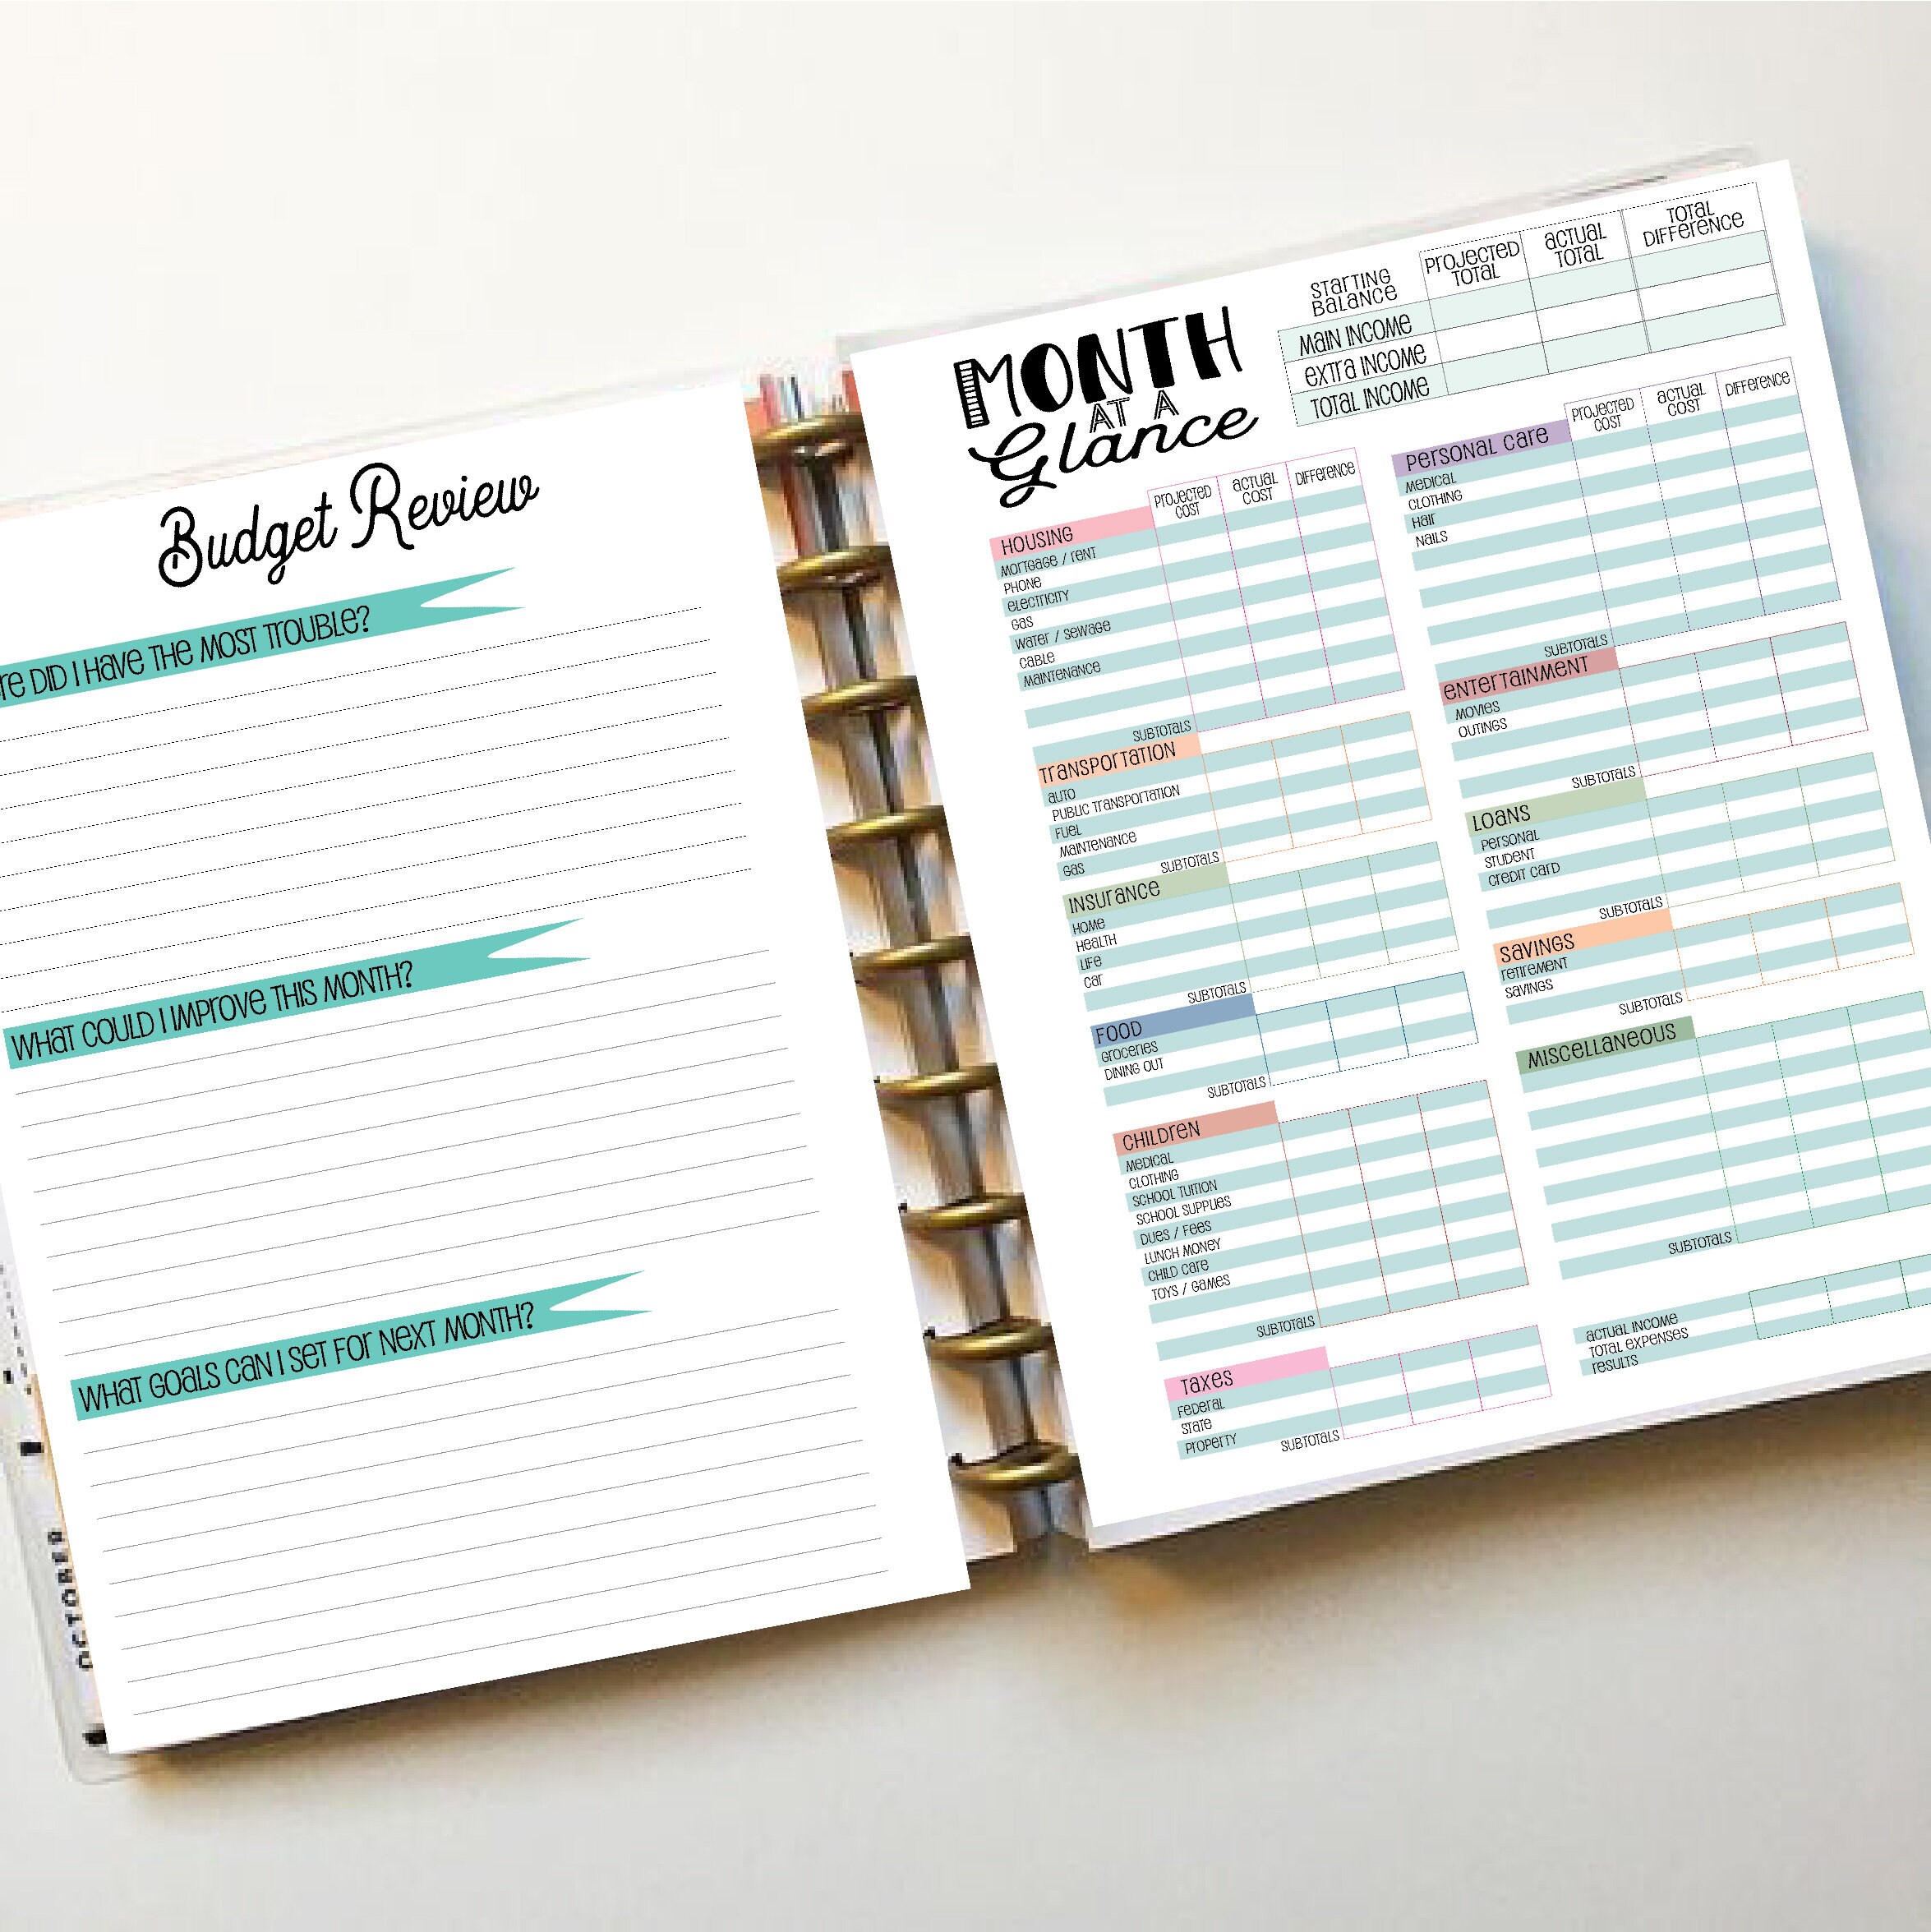 Budget Review
RE DID I HAVE THE MOST TROUBLE?
WHAT COULD I IMPROVE THIS MONTH?
WHAT GOALS CAN I SET FOR NEXT MONTH?
OCTOBER
MONTH
AT A
Glance
STARTING
BALANCE
PROJECTED
TOTAL
ACTUAL
TOTAL
TOTAL
DIFFERENCE
MAIN INCOME
EXTRA INCOME
TOTAL INCOME
PROJECTED
COST
ACTUAL
COST
DIFFERENCE
HOUSING
MORTGAGE / RENT
PHONE
ELECTRICITY
GAS
WATER / SEWAGE
CABLE
MAINTENANCE
SUBTOTALS
TRANSPORTATION
AUTO
PUBLIC TRANSPORTATION
FUEL
MAINTENANCE
GAS
SUBTOTALS
INSURANCE
HOME
HEALTH
LIFE
CAR
SUBTOTALS
FOOD
GROCERIES
DINING OUT
SUBTOTALS
CHILDREN
MEDICAL
CLOTHING
SCHOOL TUITION
SCHOOL SUPPLIES
DUES / FEES
LUNCH MONEY
CHILD CARE
TOYS / GAMES
SUBTOTALS
TAXES
FEDERAL
STATE
PROPERTY
SUBTOTALS
PROJECTED
COST
ACTUAL
COST
DIFFERENCE
PERSONAL CARE
MEDICAL
CLOTHING
HAIR
NAILS
SUBTOTALS
ENTERTAINMENT
MOVIES
OUTINGS
SUBTOTALS
LOANS
PERSONAL
STUDENT
CREDIT CARD
SUBTOTALS
SAVINGS
RETIREMENT
SAVINGS
SUBTOTALS
MISCELLANEOUS
SUBTOTALS
ACTUAL INCOME
TOTAL EXPENSES
RESULTS